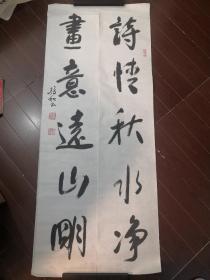 詩情秋水净
畫意遠山明